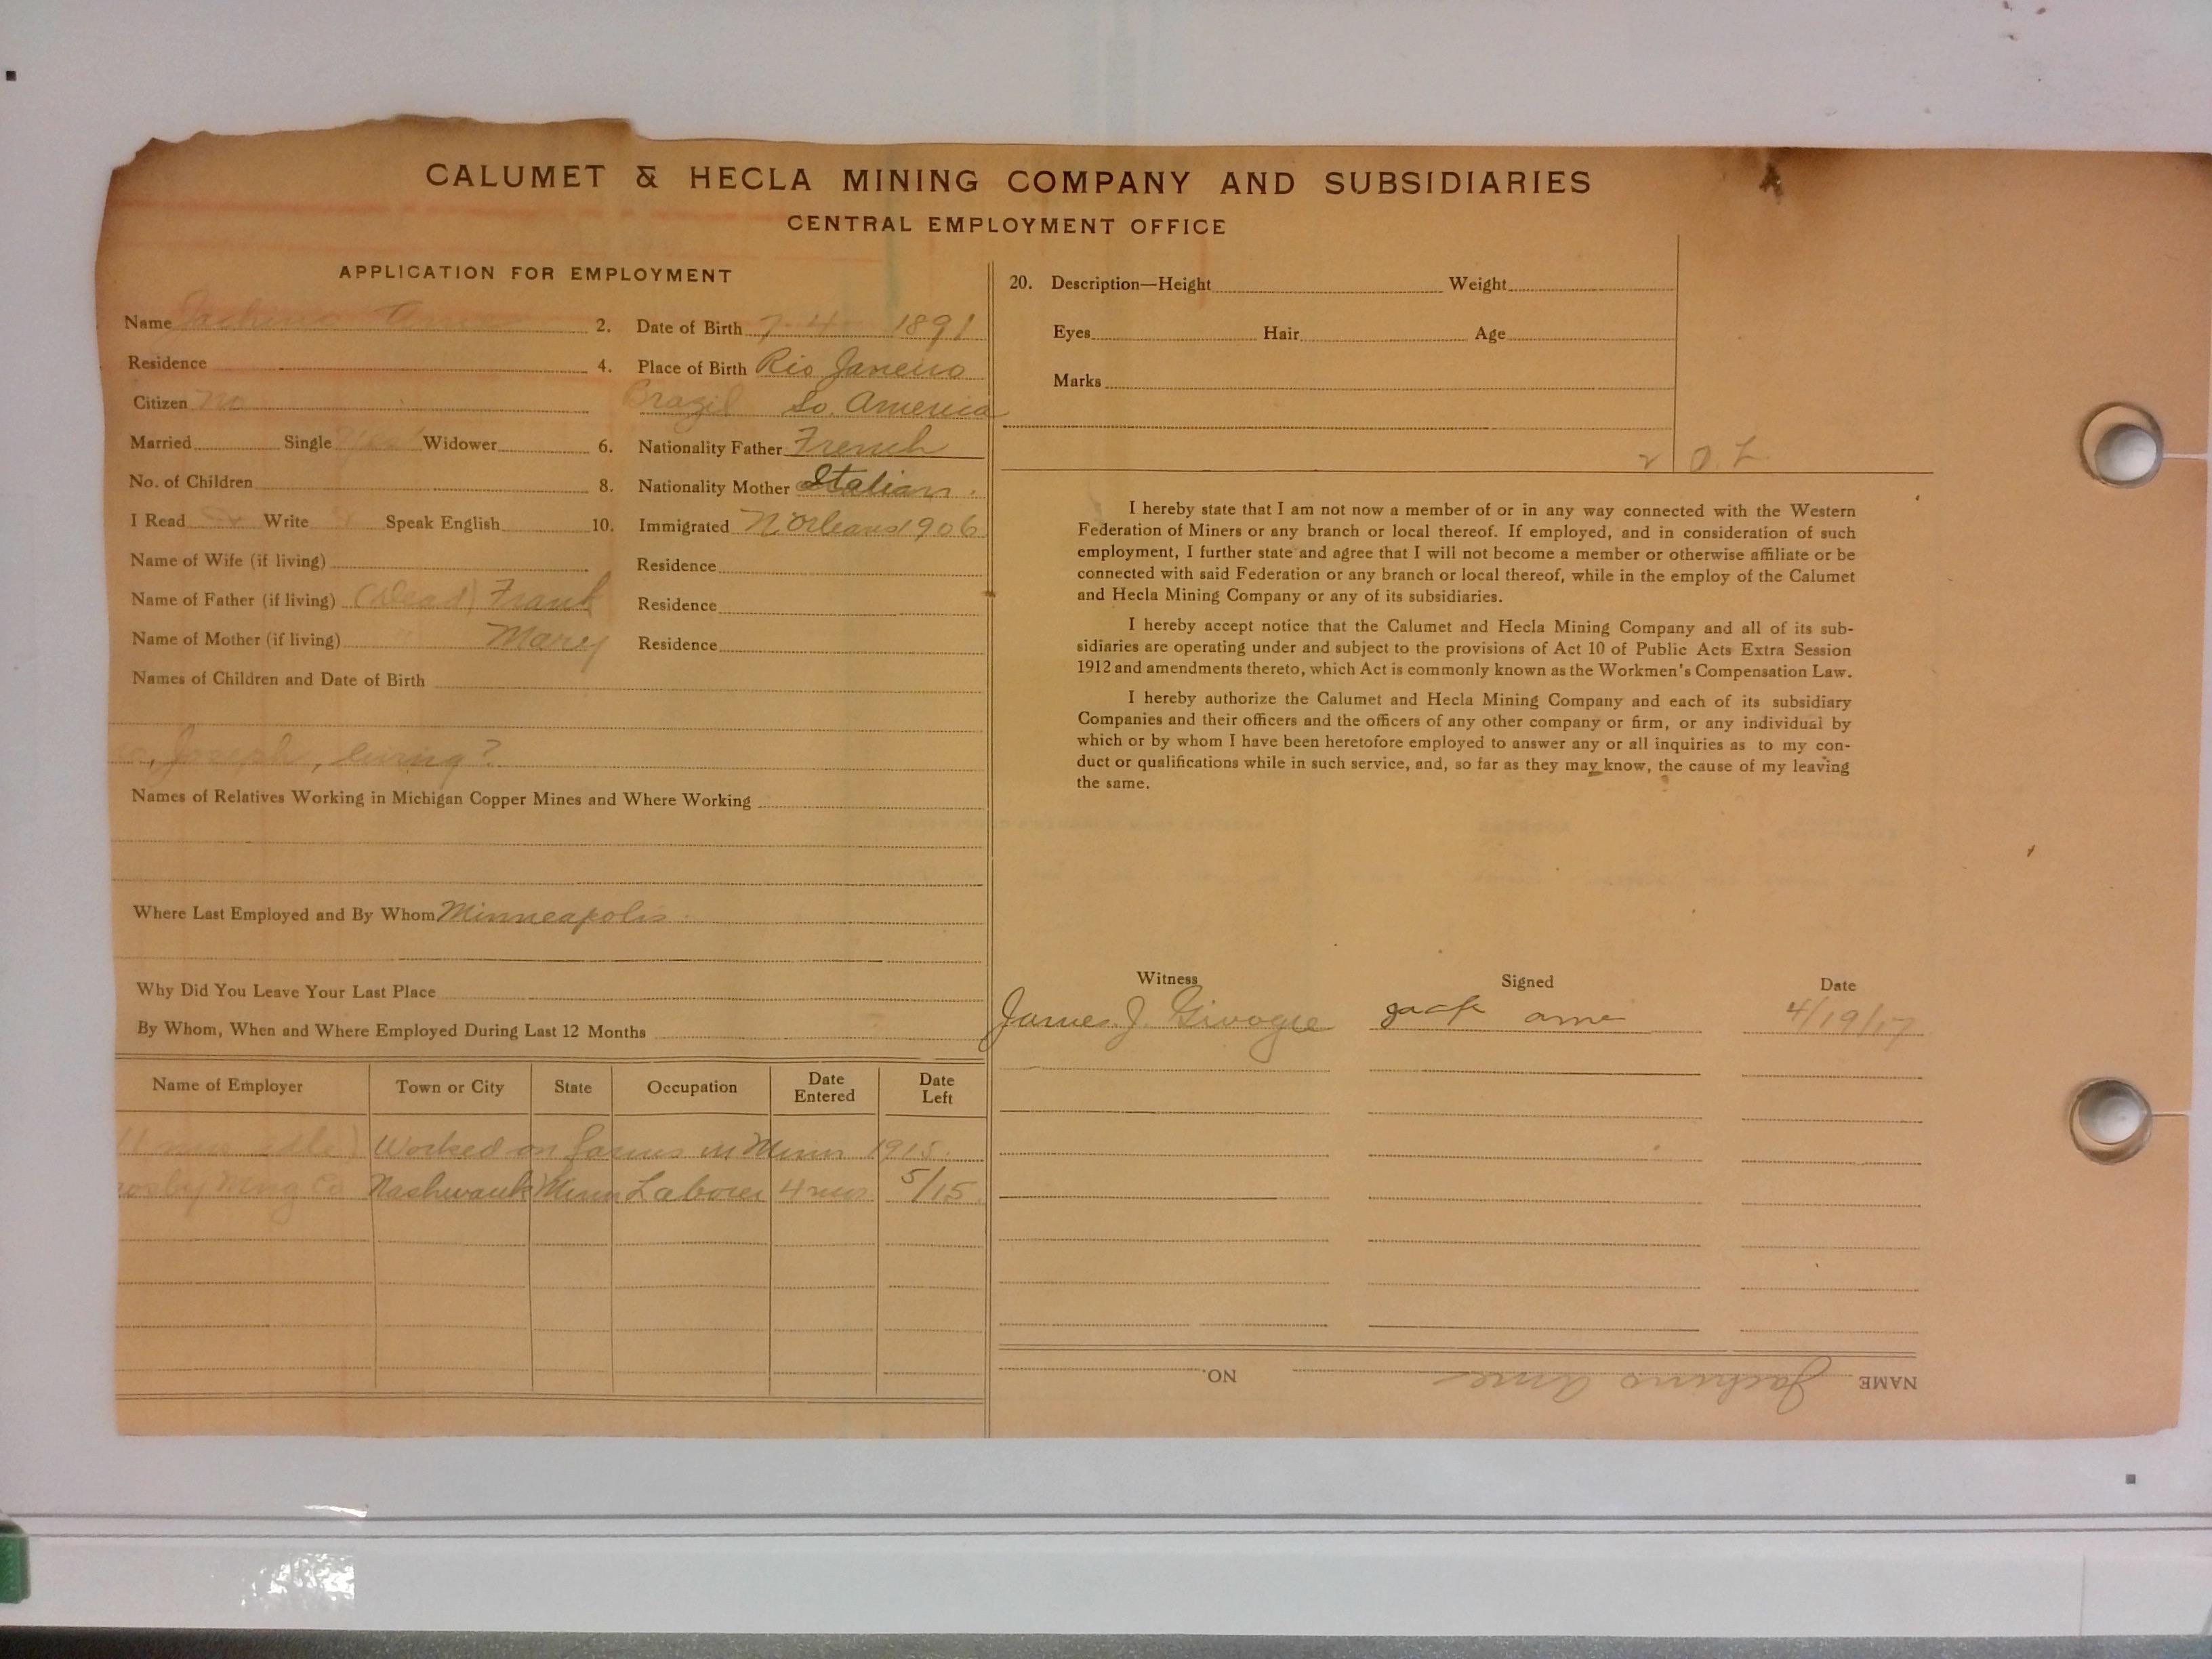 CALUMET & HECLA MINING COMPANY AND SUBSIDIARIES
CENTRAL EMPLOYMENT OFFICE
APPLICATION FOR EMPLOYMENT
Name Jachino Ame 2. Date of Birth 7-4- 1891
Residence 4. Place of Birth Rio Janeiro
Citizen No Brazil So. America
Married Single Yes Widower 6. Nationality Father French
No. of Children 8. Nationality Mother Italian.
I Read Write Speak English 10. Immigrated N Orleans 1906
Name of Wife (if living) Residence
Name of Father (if living) (Dead) Frank Residence
Name of Mother (if living) " Mary Residence
Names of Children and Date of Birth
Joseph, living?
Names of Relatives Working in Michigan Copper Mines and Where Working
Where Last Employed and By Whom Minneapolis
Why Did You Leave Your Last Place
By Whom, When and Where Employed During Last 12 Months
Name of Employer Town or City State Occupation Date Entered Date Left
idle) Worked on farms in Minn 1915.
rosby Mng Co Nashwauk Minn Laborer 4 mos 5/15
20. Description—Height Weight
Eyes Hair Age
Marks
O.L.
I hereby state that I am not now a member of or in any way connected with the Western
Federation of Miners or any branch or local thereof. If employed, and in consideration of such
employment, I further state and agree that I will not become a member or otherwise affiliate or be
connected with said Federation or any branch or local thereof, while in the employ of the Calumet
and Hecla Mining Company or any of its subsidiaries.
I hereby accept notice that the Calumet and Hecla Mining Company and all of its sub-
sidiaries are operating under and subject to the provisions of Act 10 of Public Acts Extra Session
1912 and amendments thereto, which Act is commonly known as the Workmen's Compensation Law.
I hereby authorize the Calumet and Hecla Mining Company and each of its subsidiary
Companies and their officers and the officers of any other company or firm, or any individual by
which or by whom I have been heretofore employed to answer any or all inquiries as to my con-
duct or qualifications while in such service, and, so far as they may know, the cause of my leaving
the same.
Witness Signed Date
James J. Jack Ame 4/19/17
NAME Jachino Ame NO.